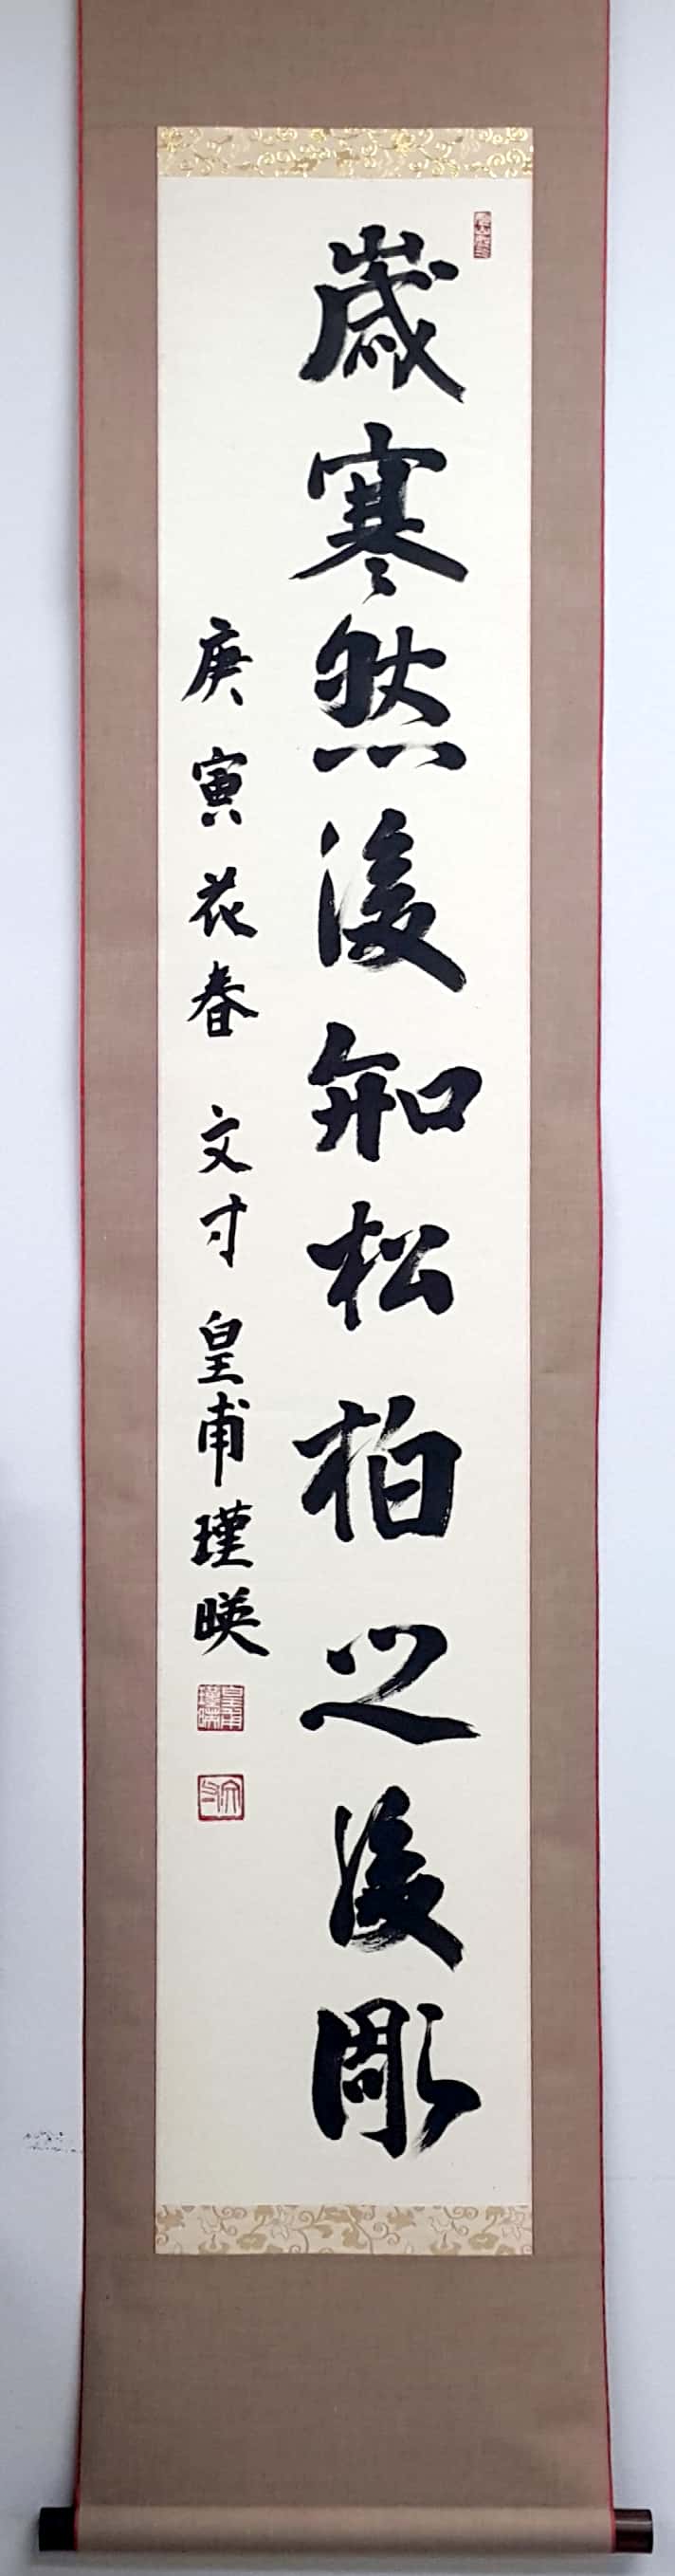 歲寒然後知松柏之後彫
庚寅花春 文寸 皇甫瑾暎
皇甫瑾暎